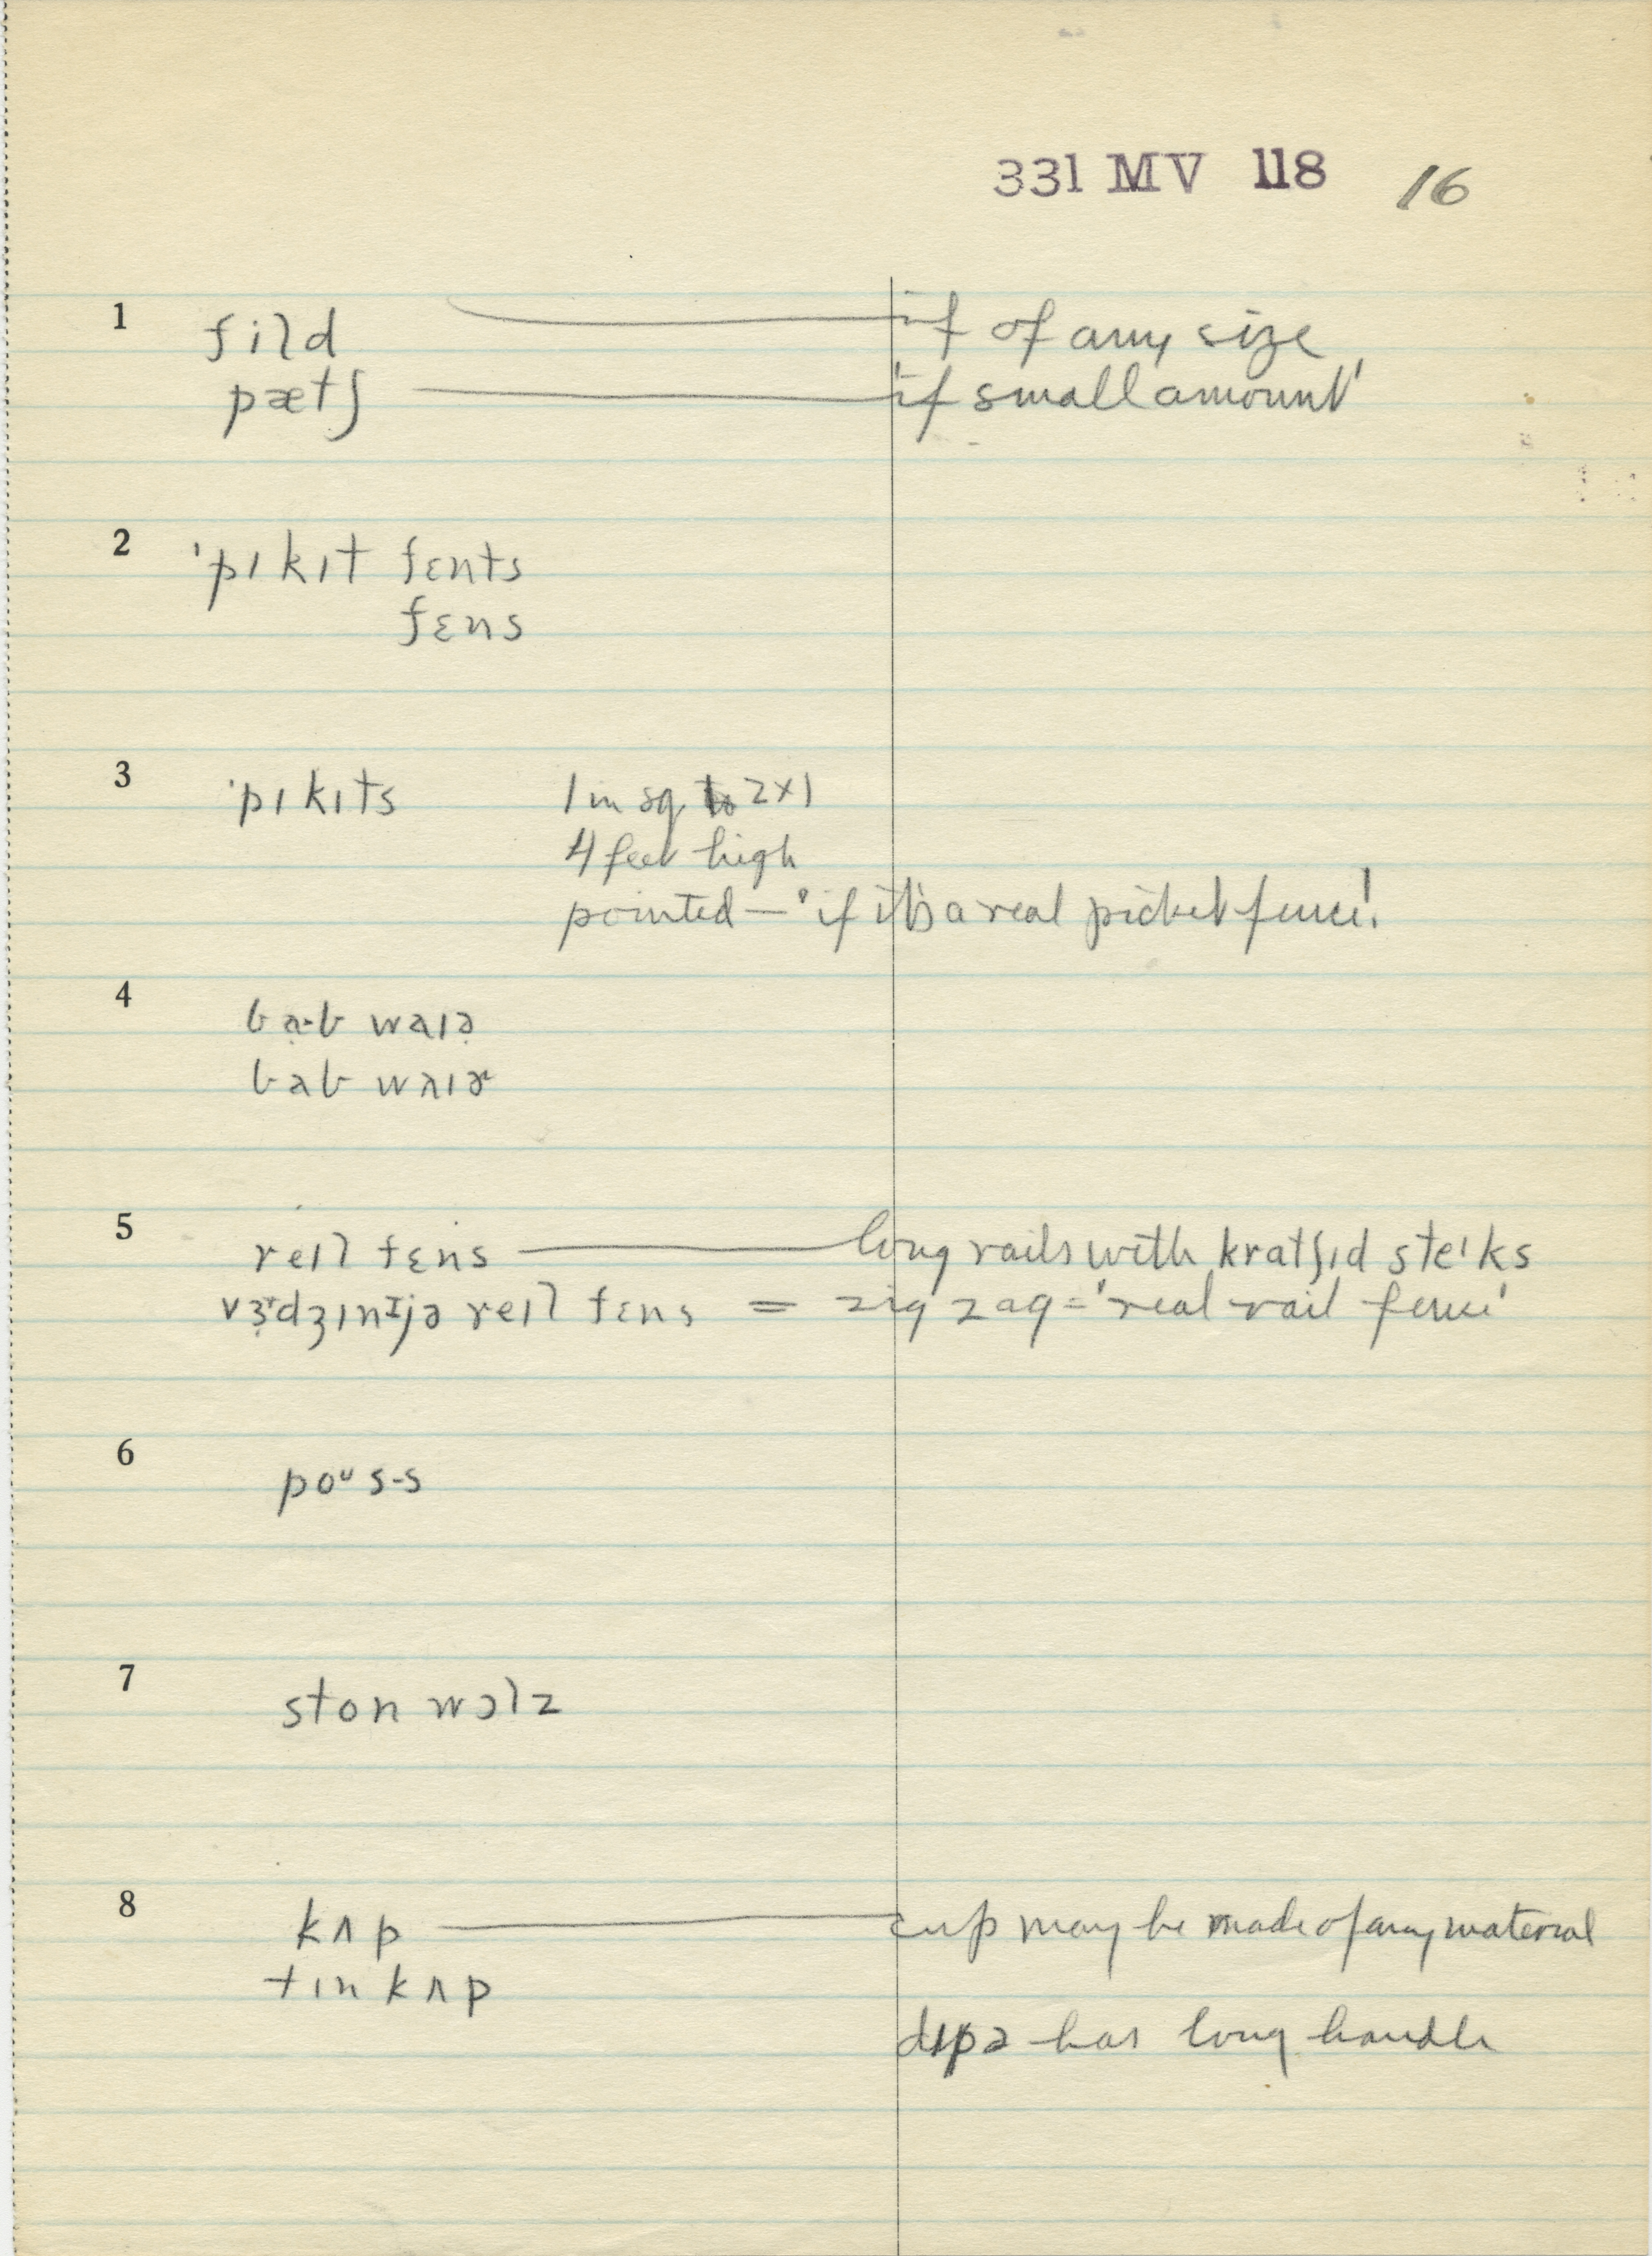 331 MV 118 16
1 fild — if of any size
pætʃ — 'if small amount'
2 'pɪkɪt fɛnts
fɛns
3 'pɪkɪts 1 in sq to 2x1
4 feet high
pointed — 'if it's a real picket fence'.
4 baˑb waɪə
bab waɪɚ
5 reɪl fɛns — long rails with kratʃɪd steɪks
vɝdʒɪnɪjə reɪl fɛns = zig zag = 'real rail fence'
6 poᴜs-s
7 ston wɔlz
8 kʌp — cup may be made of any material
tɪn kʌp
dɪpə has long handle